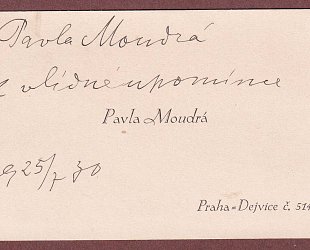 Pavla Moudrá
vlídné upomínce
Pavla Moudrá
25/7 30
Praha-Dejvice č. 514